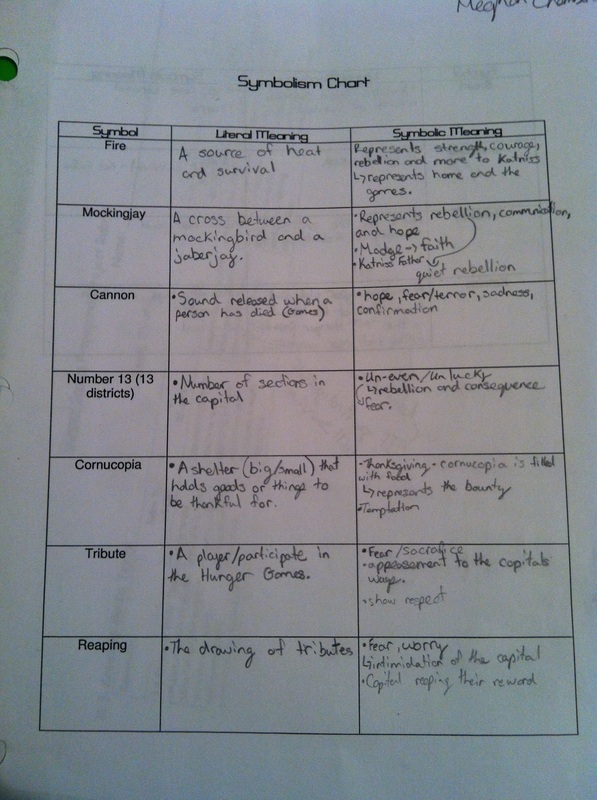 Meghan
Symbolism Chart
Symbol
Literal Meaning
Symbolic Meaning
Fire
A source of heat
and survival
Represents strength, courage,
rebelion and more to Katniss
↳represents home and the
games.
Mockingjay
A cross between a
mockingbird and a
jaberjay.
•Represents rebellion, communication,
and hope
•Madge -> faith
•Katniss Father
quiet rebellion
Cannon
•Sound released when a
person has died (Games)
•hope, fear/terror, sadness,
confirmation
Number 13 (13
districts)
•Number of sections in
the capital
•Un-even/unlucky
↳rebellion and consequence
↳fear.
Cornucopia
•A shelter (big/small) that
holds goods or things to
be thankful for.
-Thanksgiving - cornucopia is filled
with food
↳represents the bounty
•Temptation
Tribute
•A player/participate in
the Hunger Games.
•Fear/sacrafice
•appeasement to the capitals
ways.
•show respect
Reaping
•The drawing of tributes
•Fear, worry
↳intimidation of the capital
•Capital reaping their reward